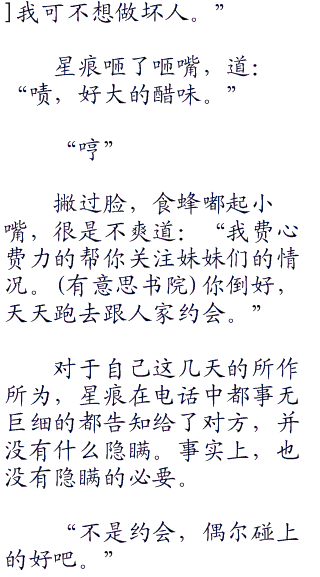 ]我可不想做坏人。”
星痕咂了咂嘴，道：
“啧，好大的醋味。”
“哼”
撇过脸，食蜂嘟起小
嘴，很是不爽道：“我费心
费力的帮你关注妹妹们的情
况。(有意思书院)你倒好，
天天跑去跟人家约会。”
对于自己这几天的所作
所为，星痕在电话中都事无
巨细的都告知给了对方，并
没有什么隐瞒。事实上，也
没有隐瞒的必要。
“不是约会，偶尔碰上
的好吧。”